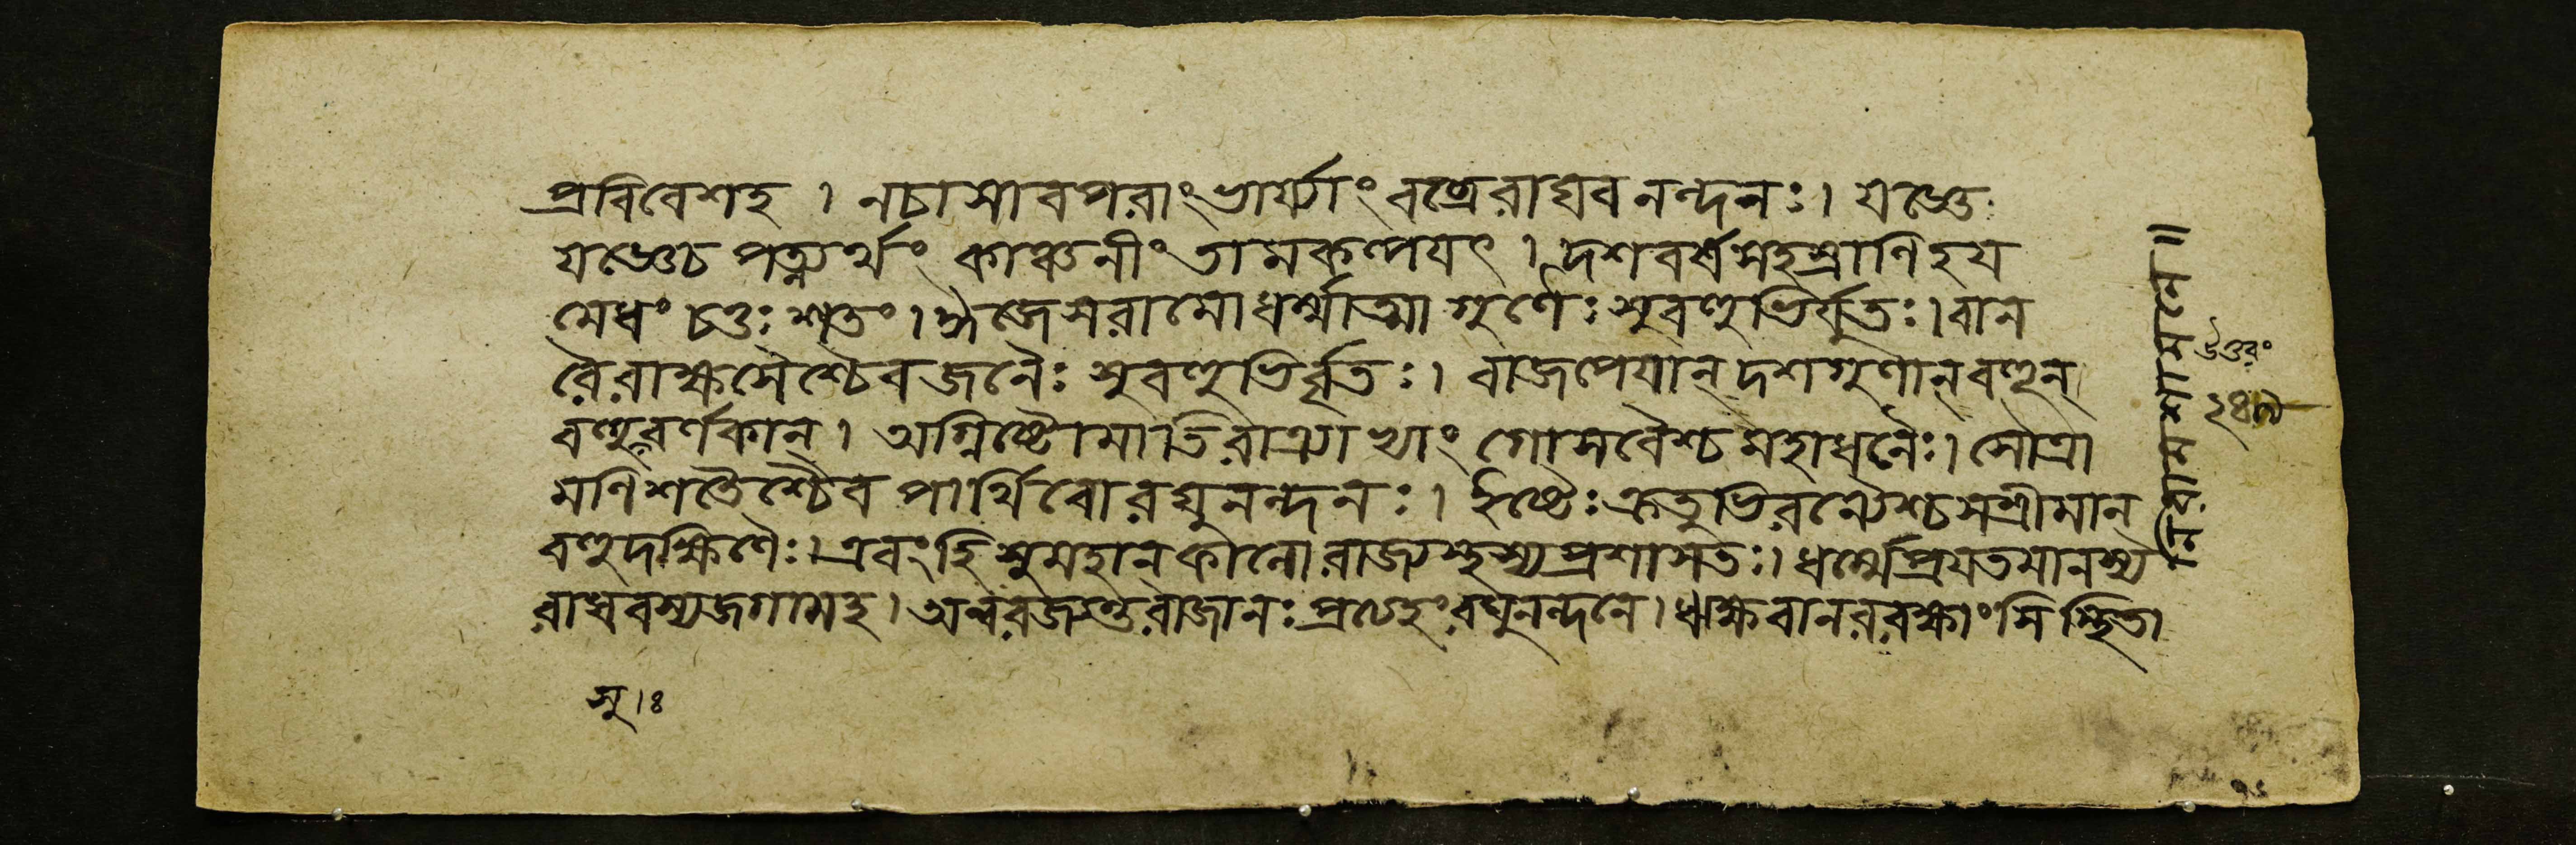 প্রবিবেশহ । নচাসাবপরাংভার্য্যাংবব্রেরাঘবনন্দনঃ। যজ্ঞে
যজ্ঞেচ পত্ন্যর্থং কাঞ্চনীং তামকল্পযৎ । দশবর্শসহস্রাণিহয
মেধং চতুঃশতং। ঈজেসরামোধর্ম্মাত্মা গুণৈঃ সুবহুভির্যুতঃ। বান
রৈরাক্ষসৈশ্চৈবজনৈঃ সুবহুভির্বৃতঃ। বাজপেযান্ দশগুণান্বহূন্
বহুবর্ণকান্। অগ্নিষ্টোমাতিরাত্র্যাখ্যাং গোসবৈশ্চমহাধনৈঃ। সৌত্রা
মণিশতৈশ্চৈব পার্থিবোরঘুনন্দনঃ। ইষ্টৈঃক্রতুভিরন্যৈশ্চসশ্রীমান্
বহুদক্ষিণৈঃ। এবংহিসুমহান্কালোরাজ্যস্থস্যপ্রশাসতঃ। ধর্ম্মেপ্রযতমানস্য
রাঘবস্যজগামহ। অন্বরজ্যন্তরাজানঃ প্রত্যহংরঘুনন্দনে। ঋক্ষবানররক্ষাংসিস্থিতা
সু।ঃ
উত্তরং
২৪৭